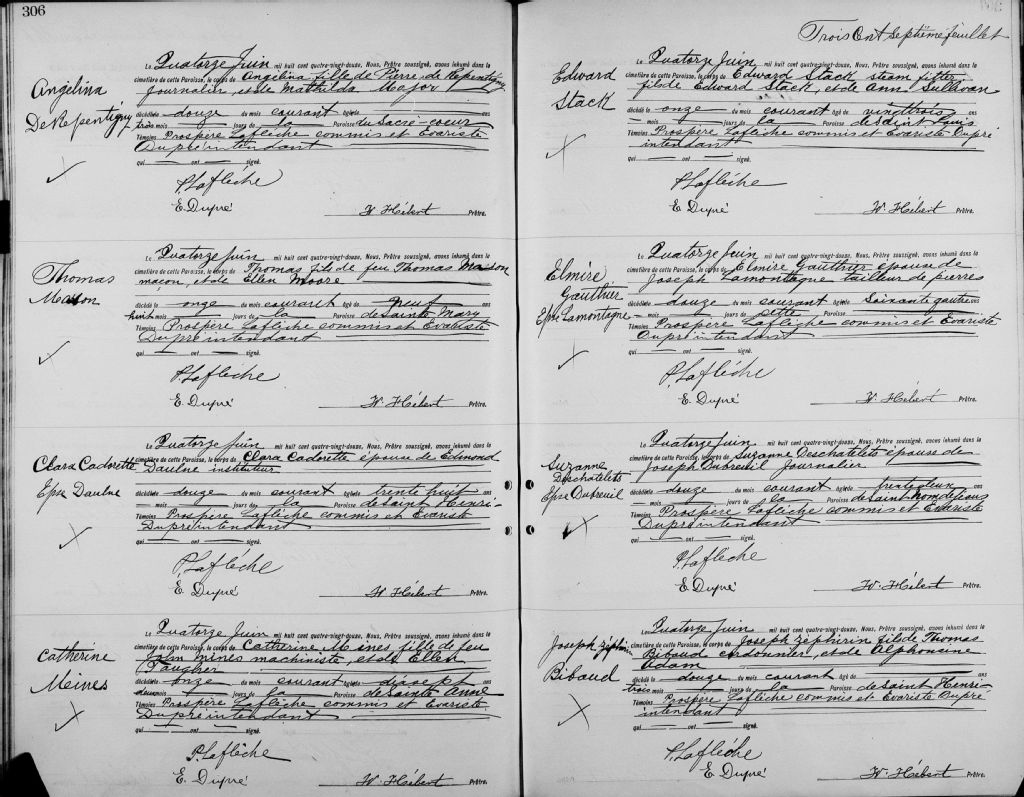 306
Angélina
DeRepentigny
Le Quatorze Juin mil huit cent quatre-vingt-douze. Nous, Prêtre soussigné, avons inhumé dans le
cimetière de cette Paroisse, le corps de Angélina fille de Pierre de Repentigny
journalier, et de Mathilda Major
décédée le douze du mois courant âgée de
trois mois jours de la Paroisse du Sacré-coeur
Témoins Prospère Laflèche commis et Évariste
Dupré intendant
qui — ont — signé.
P. Laflèche
E. Dupré W Hébert Prêtre.
Thomas
Mason
Le Quatorze Juin mil huit cent quatre-vingt-douze. Nous, Prêtre soussigné, avons inhumé dans le
cimetière de cette Paroisse, le corps de Thomas fils de feu Thomas Mason
maçon, et de Ellen Moore
décédé le onze du mois courant âgé de neuf
huit mois — jours de la Paroisse de Sainte Mary
Témoins Prospère Laflèche commis et Évariste
Dupré intendant
qui — ont — signé.
P. Laflèche
E. Dupré W Hébert Prêtre.
Clara Cadorette
Epse Daulne
Le Quatorze Juin mil huit cent quatre-vingt-douze. Nous, Prêtre soussigné, avons inhumé dans le
cimetière de cette Paroisse, le corps de Clara Cadorette épouse de Edmond
Daulne instituteur
décédée le douze du mois courant âgée de trente huit ans
— mois — jours de la Paroisse de Saint Henri-
Témoins Prospère Laflèche commis et Évariste
Dupré intendant
qui — ont — signé.
P. Laflèche
E. Dupré W Hébert Prêtre.
Catherine
Meines
Le Quatorze Juin mil huit cent quatre-vingt-douze. Nous, Prêtre soussigné, avons inhumé dans le
cimetière de cette Paroisse, le corps de Catherine Meines, fille de feu
John Mines machiniste, et de Ellen
décédée onze courant dixsept
mois — jours de la Paroisse de Sainte Anne
Témoins Prospère Laflèche commis et Évariste
Dupré intendant
qui — ont — signé.
P. Laflèche
E. Dupré W. Hébert Prêtre.
Trois Cent septième feuillet
Edward
Stack
Le Quatorze Juin mil huit cent quatre-vingt-douze. Nous, Prêtre soussigné, avons inhumé dans le
cimetière de cette Paroisse, le corps de Edward Stack steam fitter
fils de Edward Stack, et de Ann Sullivan
décédé le onze du mois courant âgé de vingttrois ans
— mois — jours de la Paroisse de Saint Louis
Témoins Prospère Laflèche commis et Évariste Dupré
intendant
qui — ont — signé.
P. Laflèche
E. Dupré W. Hébert Prêtre.
Elmire
Gauthier
Epse Lamontagne
Le Quatorze Juin mil huit cent quatre-vingt-douze. Nous, Prêtre soussigné, avons inhumé dans le
cimetière de cette Paroisse, le corps de Elmire Gauthier épouse de
Joseph Lamontagne tailleur de pierres
décédée le douze du mois courant âgée de Soixante quatre ans
— mois — jours de cette Paroisse
Témoins Prospère Laflèche commis et Évariste
Dupré intendant
qui — ont — signé.
P. Laflèche
E. Dupré W. Hébert Prêtre.
Suzanne
Deschatelets
Epse Dubreuil
Le Quatorze Juin mil huit cent quatre-vingt-douze. Nous, Prêtre soussigné, avons inhumé dans la
cimetière de cette Paroisse, le corps de Suzanne Deschatelets épouse de
Joseph Dubreuil journalier
décédée le douze du mois courant âgée de trentedeux ans
— mois — jours de la Paroisse de Saint nom de Jésus
Témoins Prospère Laflèche commis et Évariste
Dupré intendant
qui — ont — signé.
P. Laflèche
E. Dupré W. Hébert Prêtre.
Joseph Zéphirin
Bibaud
Le Quatorze Juin mil huit cent quatre-vingt-douze. Nous, Prêtre soussigné, avons inhumé dans le
cimetière de cette Paroisse, le corps de Joseph Zéphirin fils de Thomas
Bibaud cordonnier, et de Alphonsine
Adam
décédé le douze du mois courant âgé de
trois mois jours de la Paroisse de Saint Henri-
Témoins Prospère Laflèche commis et Évariste Dupré
intendant
qui — ont — signé.
P. Laflèche
E. Dupré W. Hébert Prêtre.